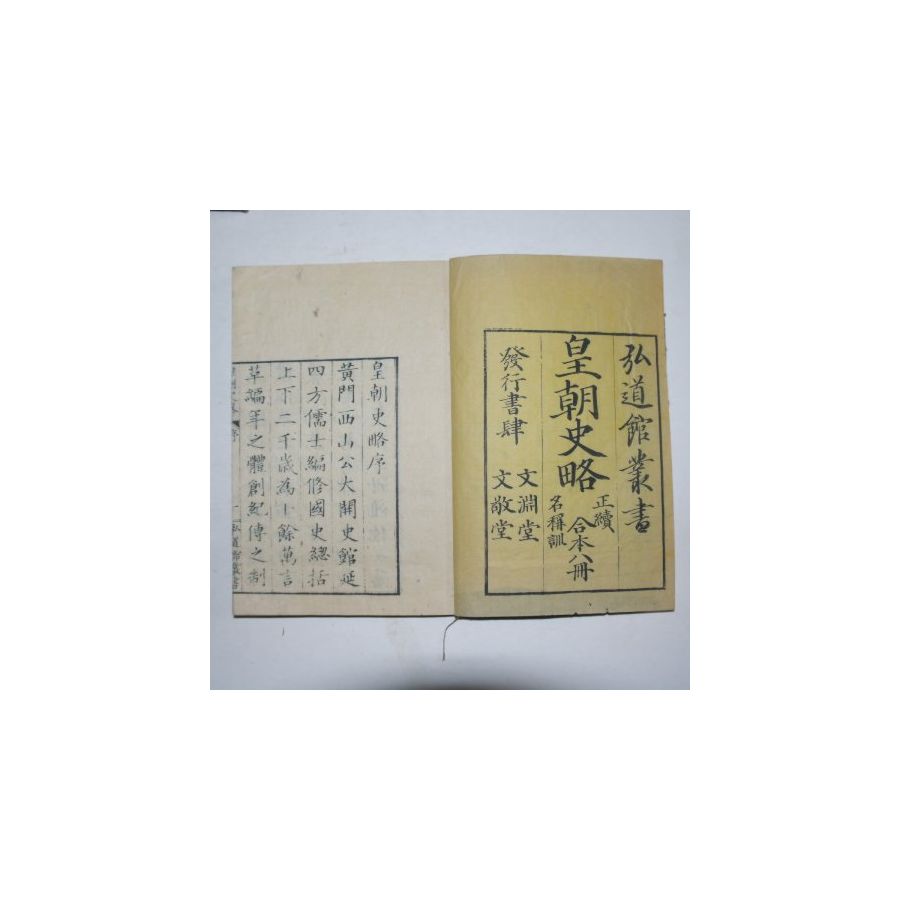 弘道館叢書
皇朝史略
正續
名稱訓
合本八冊
發行書肆
文淵堂
文敬堂
皇朝史略序
黃門西山公大開史館延
四方儒士編修國史總括
上下二千歳為
餘萬言
草編年之體創紀傳之制